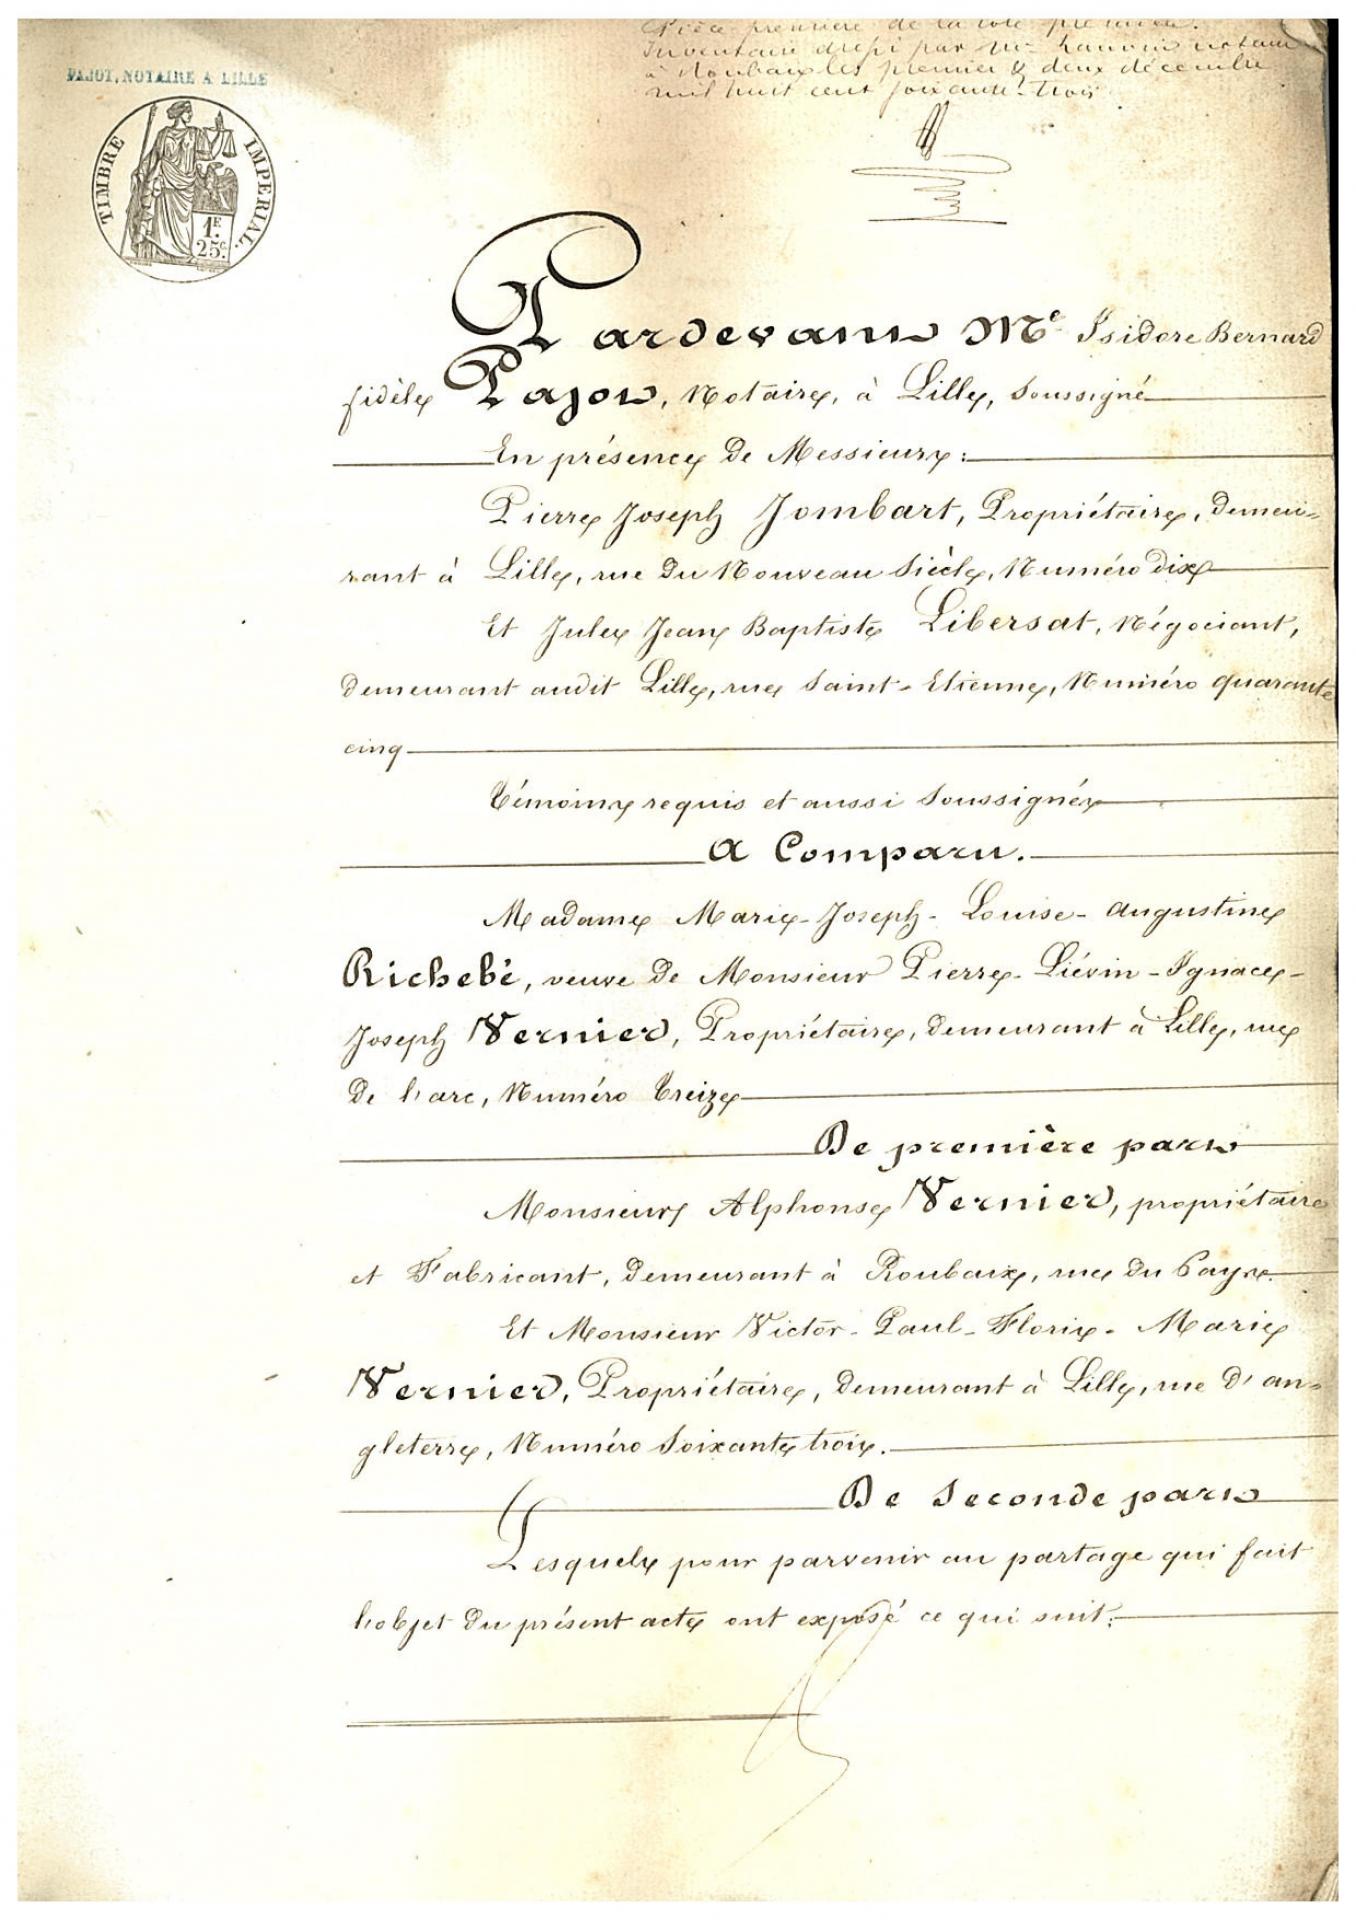 PAJOT, NOTAIRE A LILLE
TIMBRE IMPERIAL
1F.
25c.
Pièce première de la cote première.
Inventaire dressé par Me notaire
à Roubaix les premier & deux décembre
mil huit cent soixante-trois
Pardevant Me Isidore Bernard
fidèle Pajot, Notaire, à Lille, Soussigné
En présence de Messieurs :
Pierre Joseph Jombart, Propriétaire, demeu=
rant à Lille, rue du Nouveau Siècle, Numéro dix
Et Jules Jean Baptiste Libersat, Négociant,
demeurant audit Lille, rue Saint-Etienne, Numéro quarante
cinq
Témoins requis et aussi Soussignés
A Comparu.
Madame Marie-Joseph-Louise-Augustine
Richebé, veuve de Monsieur Pierre-Liévin-Ignace-
Joseph Vernier, Propriétaire, demeurant à Lille, rue
de l'arc, Numéro treize
De première part
Monsieur Alphonse Vernier, propriétaire
et Fabricant, demeurant à Roubaix, rue du Pays.
Et Monsieur Victor-Paul-Florix-Marie
Vernier, Propriétaire, demeurant à Lille, rue d'an=
gleterre, Numéro Soixante trois.
De Seconde part
Lesquels pour parvenir au partage qui fait
l'objet du présent acte ont exposé ce qui suit: